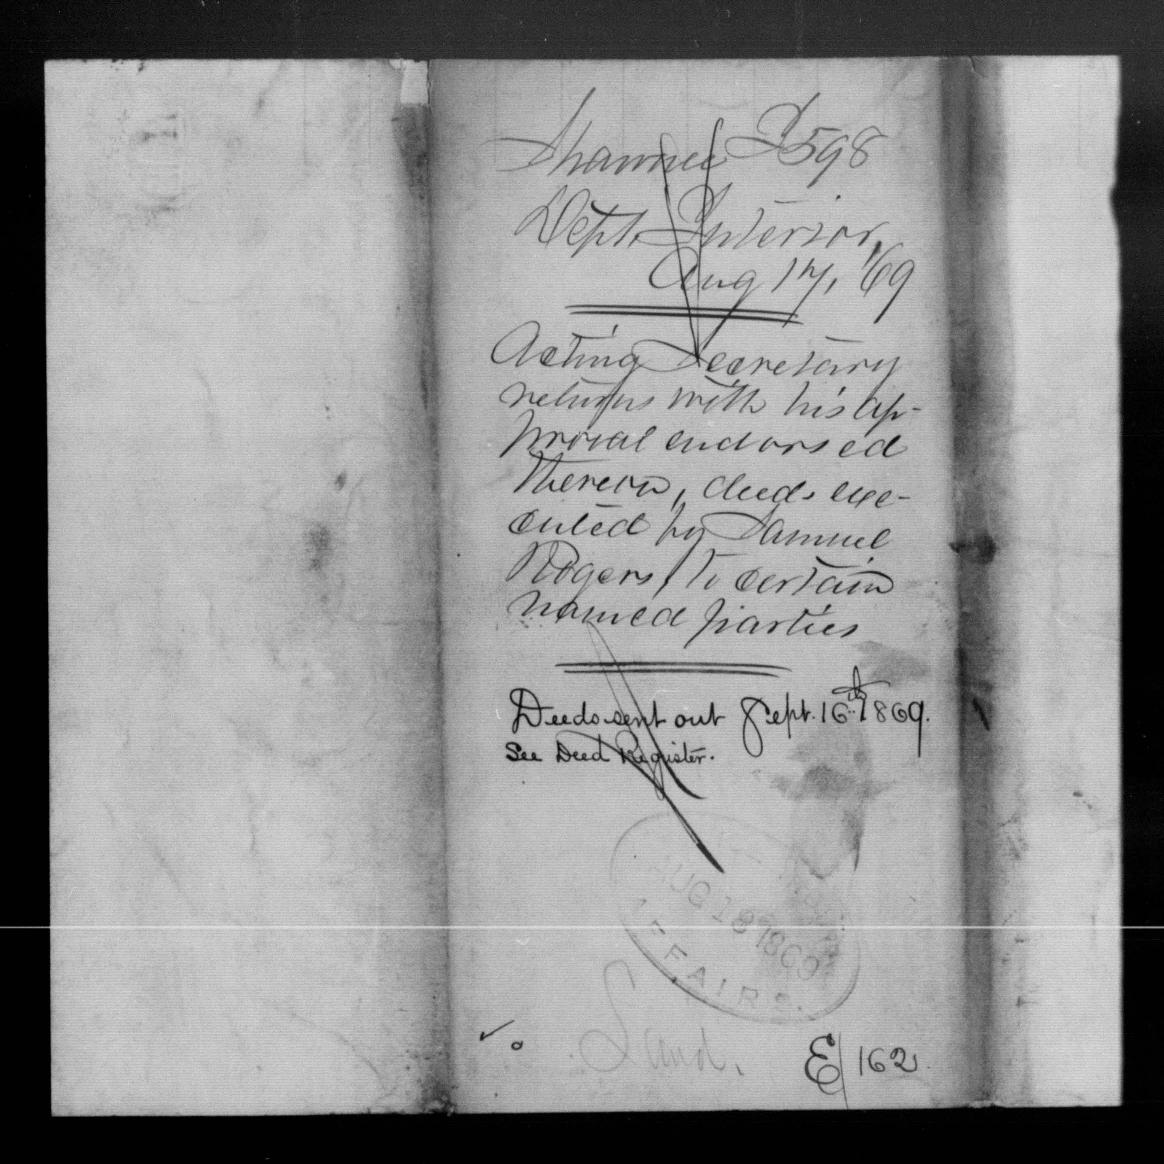 Shawnee I 598
Dept. Interior,
Aug 17, '69
Acting Secretary
returns with his ap-
proval endorsed
thereon, deeds exe-
cuted by Samuel
Rogers, to certain
named parties
Deeds sent out Sept. 16th 1869.
See Deed Register.
AUG 18 1869
AFFAIRS.
Land.
E/162